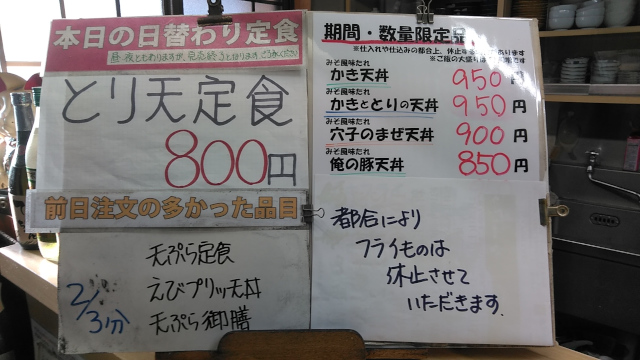 本日の日替わり定食
とり天定食
800円
前日注文の多かった品目
2/3分
天ぷら定食
えびプリッ天丼
天ぷら御膳
期間・数量限定
※仕入れや仕込みの都合上、休止す
みそ風味たれ
かき天丼 950円
みそ風味たれ
かきととりの天丼 950円
みそ風味たれ
穴子のまぜ天丼 900円
みそ風味たれ
俺の豚天丼 850円
都合により
フライものは
休止させて
いただきます。